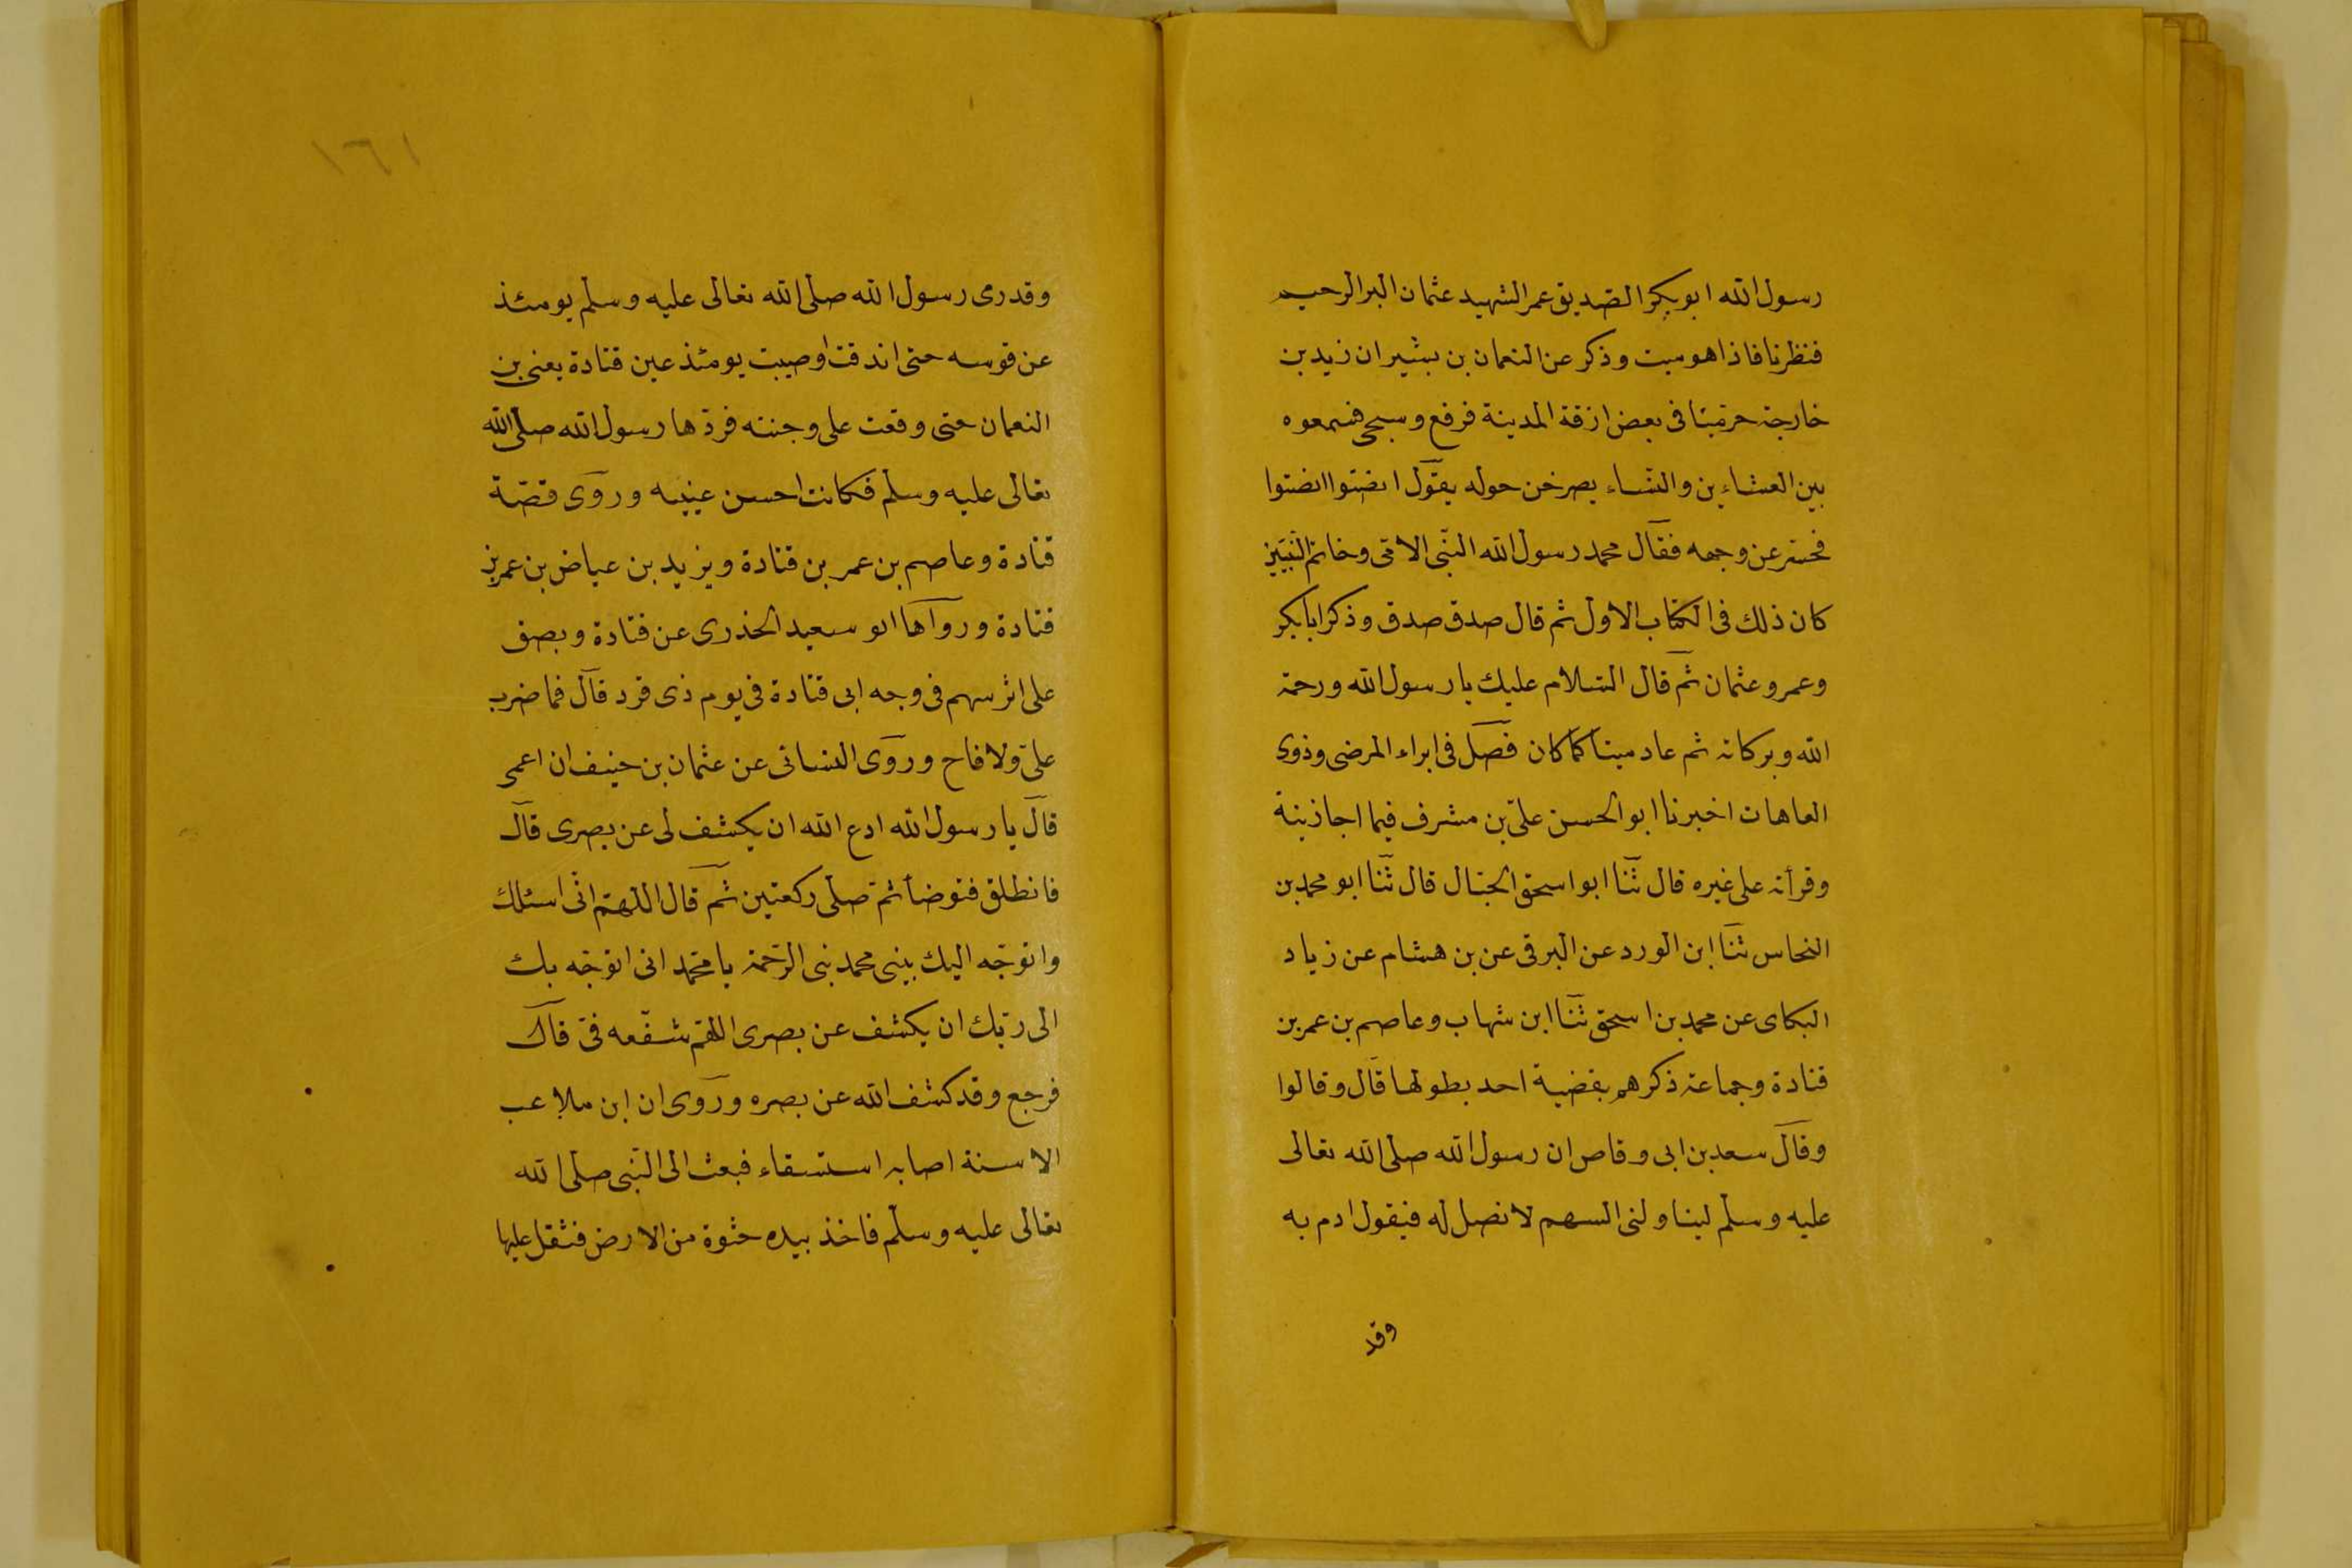 رسول الله ابو بكر الصديق عمر الشهيد عثمان البر الرحيم
فنظرنا فاذا هو ميت وذكر عن النعمان بن بشير ان زيد بن
خارجة خر ميتا فى بعض ازقة المدينة فرفع وسجى فسمعوه
بين العشاءين والنساء يصرخن حوله يقول انصتوا انصتوا
فحسر عن وجهه فقال محمد رسول الله النبى الامى وخاتم النبيين
كان ذلك فى الكتاب الاول ثم قال صدق صدق وذكر ابا بكر
وعمر وعثمان ثم قال السلام عليك يا رسول الله ورحمة
الله وبركاته ثم عاد ميتا كما كان فصل فى ابراء المرضى وذوى
العاهات اخبرنا ابو الحسن على بن مشرف فيما اجازنيه
وقرأته على غيره قال ثنا ابو اسحق الحبال قال ثنا ابو محمد بن
النحاس ثنا ابن الورد عن البرقى عن بن هشام عن زياد
البكاى عن محمد بن اسحق ثنا ابن شهاب وعاصم بن عمر بن
قتادة وجماعة ذكرهم بقضية احد بطولها قال وقالوا
وقال سعد بن ابى وقاص ان رسول الله صلى الله تعالى
عليه وسلم لينا ولنى السهم لا نصل له فيقول ارم به
وقد
١٦١
وقد رمى رسول الله صلى الله تعالى عليه وسلم يومئذ
عن قوسه حتى اندقت اوصيبت يومئذ عين قتادة يعنى بن
النعمان حتى وقعت على وجنته فردها رسول الله صلى الله
تعالى عليه وسلم فكانت احسن عينيه وروى قصة
قتادة وعاصم بن عمر بن قتادة ويزيد بن عياض بن عمر بن
قتادة ورواها ابو سعيد الخدرى عن قتادة وبصق
على اثر سهم فى وجه ابى قتادة فى يوم ذى قرد قال فما ضرب
على ولا فاح وروى النسائى عن عثمان بن حنيف ان اعمى
قال يا رسول الله ادع الله ان يكشف لى عن بصرى قال
فانطلق فتوضأ ثم صلى ركعتين ثم قال اللهم انى اسئلك
واتوجه اليك بنبى محمد نبى الرحمة يا محمد انى اتوجه بك
الى ربك ان يكشف عن بصرى اللهم شفعه فى قال
فرجع وقد كشف الله عن بصره وروى ان ابن ملاعب
الاسنة اصابه استسقاء فبعث الى النبى صلى الله
تعالى عليه وسلم فاخذ بيده حثوة من الارض فثقل عليها